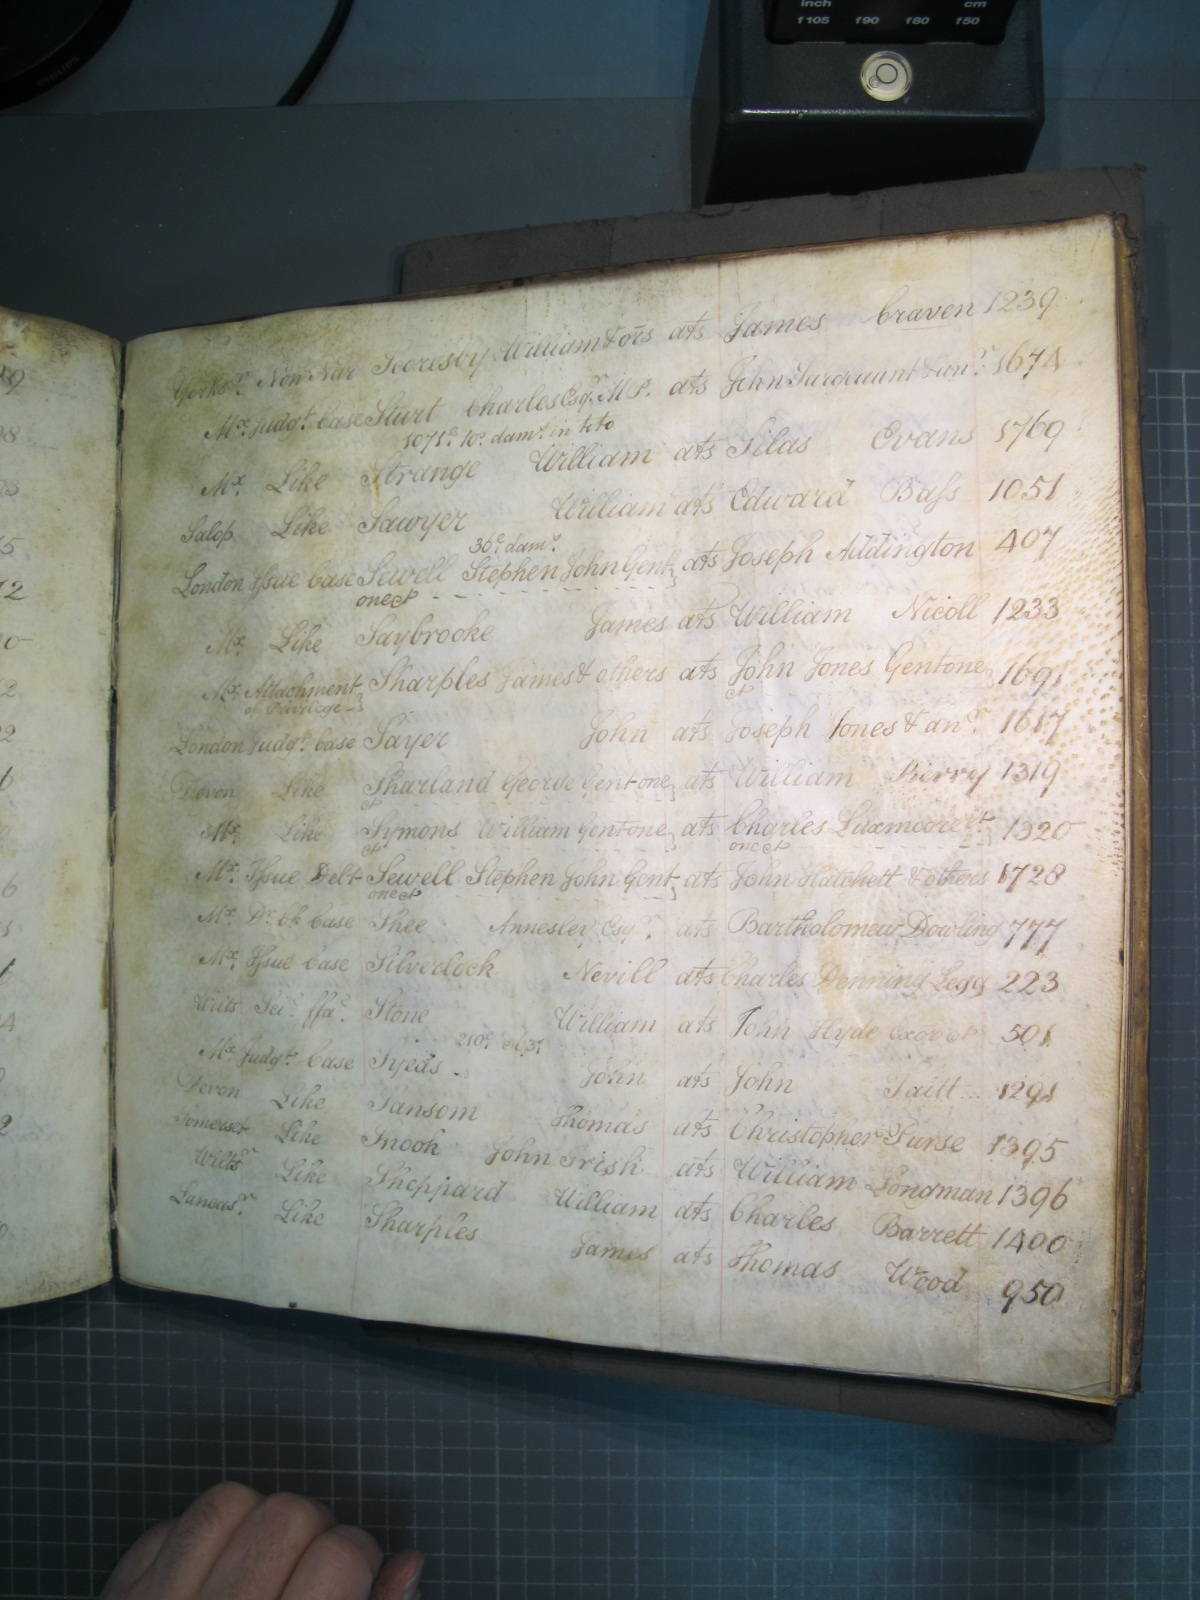 inch cm
f105 f90 f80 f50
PHILIPS
Yorksr. Non Nar Scoresby William & ors ats James Craven 1239
Mx. Judgt. Case Sturt Charles Esqr. M.P. ats John Surgeaunt & anr. 1674
1071£. 10s. damt. in toto
Mx. Like Strange William ats Silas Evans 1769
Salop Like Sawyer William ats Edward Bass 1051
30£ dams.
London Issue Case Sewell Stephen John Gent. } ats Joseph Addington 407
one &c
Mx. Like Saybrooke James ats William Nicoll 1233
Mx. Attachment of Privilege } Sharples James & others ats John Jones Gent one 1691
&c
London Judgt. Case Sayer John ats Joseph Jones & anr. 1617
Devon Like Sharland George Gent one } ats William Berry 1319
&c
Mx. Like Symons William Gent one } ats Charles Luxmoore 1320
&c one &c
Mx. Issue Debt Sewell Stephen John Gent. } ats John Hatchett & others 1728
one &c
Mx. Case Shee Annesley Esqr. ats Bartholomew Dowling 777
Mx. Issue Case Silverlock Nevill ats Charles Denning Legg 223
Wilts Sci. ffa. Stone William ats John Hyde 501
210£
Mx. Judgt. Case Syeds John ats John Taitt 1291
Devon Like Sansom Thomas ats Christopher Purse 1395
Somerset Like Snook John Irish ats William Longman 1396
Wilts Like Sheppard William ats Charles Barrett 1400
Lancasr. Like Sharples James ats Thomas Wood 950